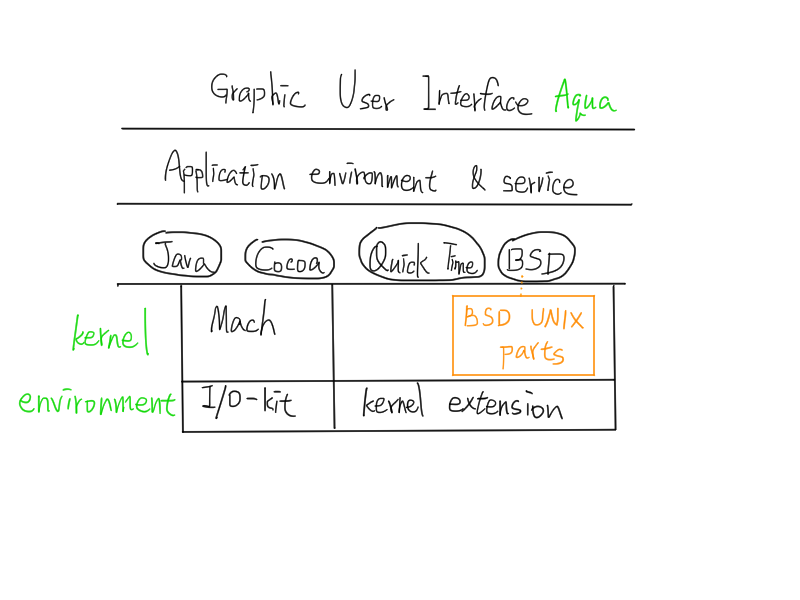 Graphic User Interface Aqua
Application environment & service
Java Cocoa Quick Time BSD
kernel
environment
Mach
BSD UNIX
parts
I/O-kit
kernel extension